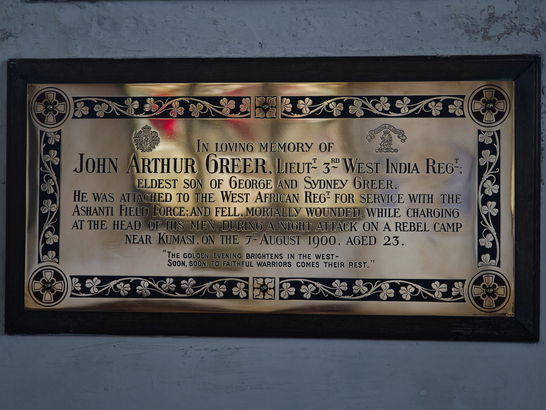 IN LOVING MEMORY OF
JOHN ARTHUR GREER, LIEUT^T 3^RD WEST INDIA REG^T;
ELDEST SON OF GEORGE AND SYDNEY GREER.
HE WAS ATTACHED TO THE WEST AFRICAN REG^T FOR SERVICE WITH THE
ASHANTI FIELD FORCE: AND FELL, MORTALLY WOUNDED, WHILE CHARGING
AT THE HEAD OF HIS MEN, DURING A NIGHT ATTACK ON A REBEL CAMP
NEAR KUMASI, ON THE 7^TH AUGUST 1900, AGED 23.
"THE GOLDEN EVENING BRIGHTENS IN THE WEST-
SOON, SOON TO FAITHFUL WARRIORS COMES THEIR REST."